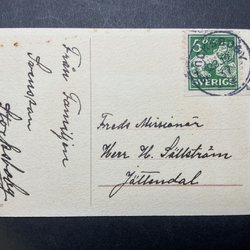 Från Familjen
Svensson
5
SVERIGE
Freds Missionär
Herr H. Sällström
Jättendal